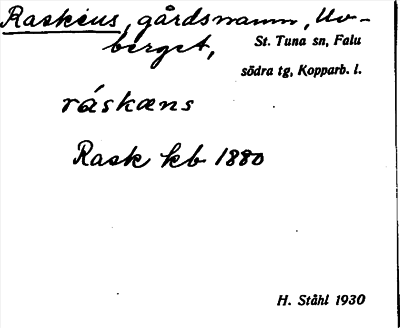 Raskens, gårdsnamn, Uv-
berget, St. Tuna sn, Falu
södra tg, Kopparb. l.
ráskæns
Rask kb 1880
H. Ståhl 1930